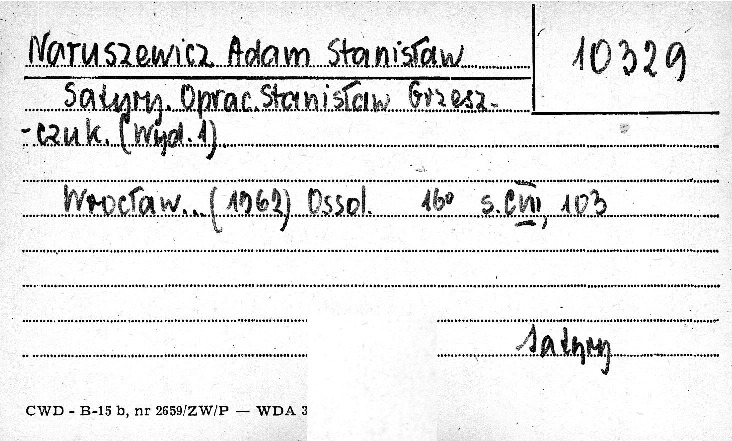 Naruszewicz Adam Stanisław
10329
Satyry. Oprac. Stanisław Grzesz-
-czuk. (Wyd. 1).
Wrocław... (1962) Ossol. 16° s. CVIII, 103
Satyry
CWD - B-15 b, nr 2659/ZW/P — WDA 3